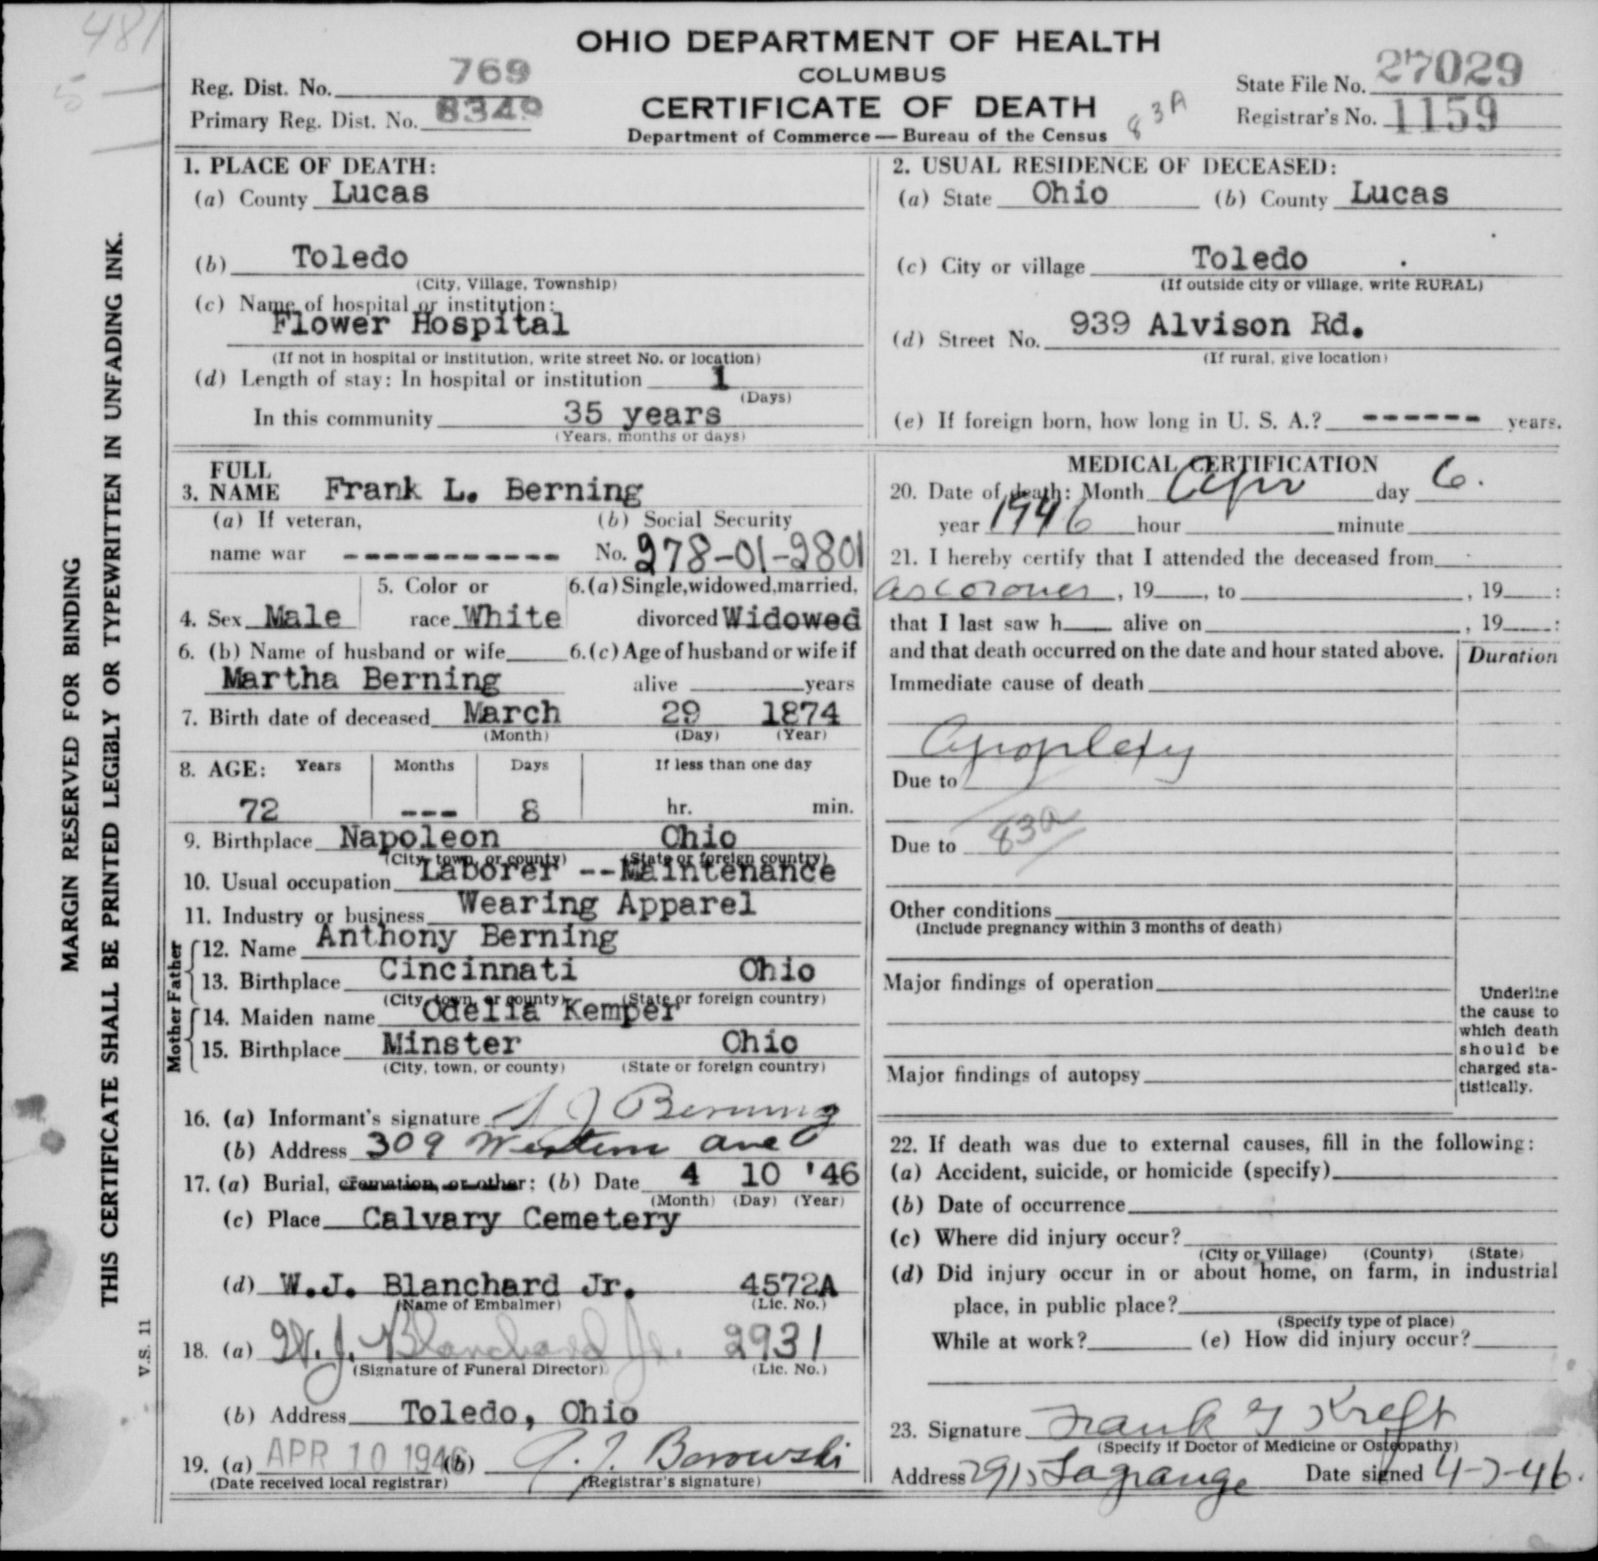 481
5 —
OHIO DEPARTMENT OF HEALTH
COLUMBUS
CERTIFICATE OF DEATH
Department of Commerce — Bureau of the Census
83A
Reg. Dist. No. 769
Primary Reg. Dist. No. 8349
State File No. 27029
Registrar's No. 1159
MARGIN RESERVED FOR BINDING
THIS CERTIFICATE SHALL BE PRINTED LEGIBLY OR TYPEWRITTEN IN UNFADING INK.
V.S. 11
1. PLACE OF DEATH:
(a) County Lucas
(b) Toledo
(City, Village, Township)
(c) Name of hospital or institution:
Flower Hospital
(If not in hospital or institution, write street No. or location)
(d) Length of stay: In hospital or institution 1
(Days)
In this community 35 years
(Years, months or days)
2. USUAL RESIDENCE OF DECEASED:
(a) State Ohio (b) County Lucas
(c) City or village Toledo
(If outside city or village, write RURAL)
(d) Street No. 939 Alvison Rd.
(If rural, give location)
(e) If foreign born, how long in U. S. A.? ------- years.
FULL
3. NAME Frank L. Berning
(a) If veteran, (b) Social Security
name war ------------ No. 278-01-2801
5. Color or 6.(a) Single, widowed, married,
4. Sex Male race White divorced Widowed
6. (b) Name of husband or wife 6.(c) Age of husband or wife if
Martha Berning alive years
7. Birth date of deceased March 29 1874
(Month) (Day) (Year)
8. AGE: Years Months Days If less than one day
72 --- 8 hr. min.
9. Birthplace Napoleon Ohio
(City, town, or county) (State or foreign country)
10. Usual occupation Laborer --Maintenance
11. Industry or business Wearing Apparel
Father
12. Name Anthony Berning
13. Birthplace Cincinnati Ohio
(City, town, or county) (State or foreign country)
Mother
14. Maiden name Odelia Kemper
15. Birthplace Minster Ohio
(City, town, or county) (State or foreign country)
16. (a) Informant's signature J Berning
(b) Address 309 Western ave
17. (a) Burial, cremation, or other: (b) Date 4 10 '46
(Month) (Day) (Year)
(c) Place Calvary Cemetery
(d) W.J. Blanchard Jr. 4572A
(Name of Embalmer) (Lic. No.)
18. (a) W. J. Blanchard Jr. 2931
(Signature of Funeral Director) (Lic. No.)
(b) Address Toledo, Ohio
19. (a) APR 10 1946 (b) Borowski
(Date received local registrar) (Registrar's signature)
MEDICAL CERTIFICATION
20. Date of death: Month Apr day 6.
year 1946 hour minute
21. I hereby certify that I attended the deceased from
as coroner, 19 , to , 19 :
that I last saw h alive on , 19 :
and that death occurred on the date and hour stated above. Duration
Immediate cause of death
Apoplexy
Due to
Due to 83a
Other conditions
(Include pregnancy within 3 months of death)
Major findings of operation
Major findings of autopsy
Underline
the cause to
which death
should be
charged sta-
tistically.
22. If death was due to external causes, fill in the following:
(a) Accident, suicide, or homicide (specify)
(b) Date of occurrence
(c) Where did injury occur?
(City or Village) (County) (State)
(d) Did injury occur in or about home, on farm, in industrial
place, in public place?
(Specify type of place)
While at work? (e) How did injury occur?
23. Signature Frank G Kreft
(Specify if Doctor of Medicine or Osteopathy)
Address 2915 Lagrange Date signed 4-7-46.